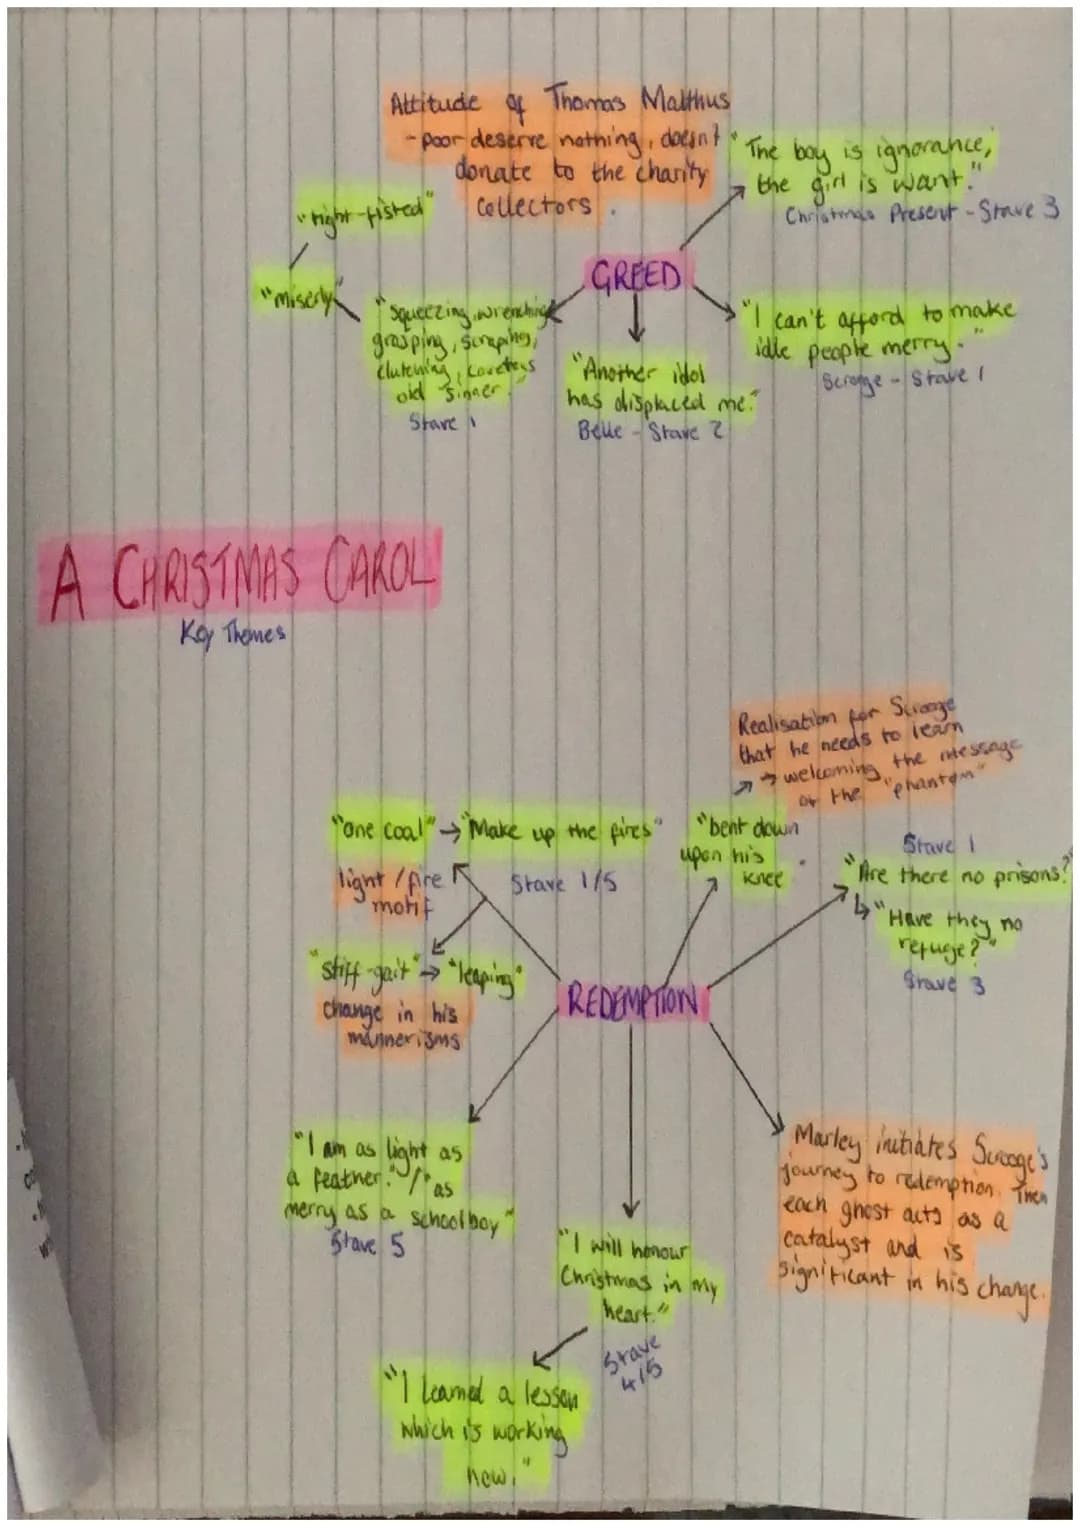 Attitude of Thomas Malthus
- poor deserve nothing, doesn't
donate to the charity
collectors.
"The boy is ignorance,
the girl is want."
Christmas Present - Stave 3
"tight-fisted"
"miserly"
GREED
"squeezing, wrenching
grasping, scraping,
clutching, covetous
old sinner."
Stave 1
"Another idol
has displaced me."
Belle - Stave 2
"I can't afford to make
idle people merry."
Scrooge - Stave 1
A CHRISTMAS CAROL
Key Themes
Realisation for Scrooge
that he needs to learn
→ welcoming the message
of the "phantom"
"one coal" → "Make up the fires"
Stave 1/5
light / fire
motif
"bent down
upon his
knee"
Stave 1
"Are there no prisons?"
↳ "Have they no
refuge?"
Stave 3
"stiff-gait" → "leaping"
change in his
mannerisms
REDEMPTION
"I am as light as
a feather." / "as
merry as a schoolboy"
Stave 5
"I will honour
Christmas in my
heart."
Stave
4/5
"I learned a lesson
which is working
now."
Marley initiates Scrooge's
journey to redemption. Then
each ghost acts as a
catalyst and is
significant in his change.